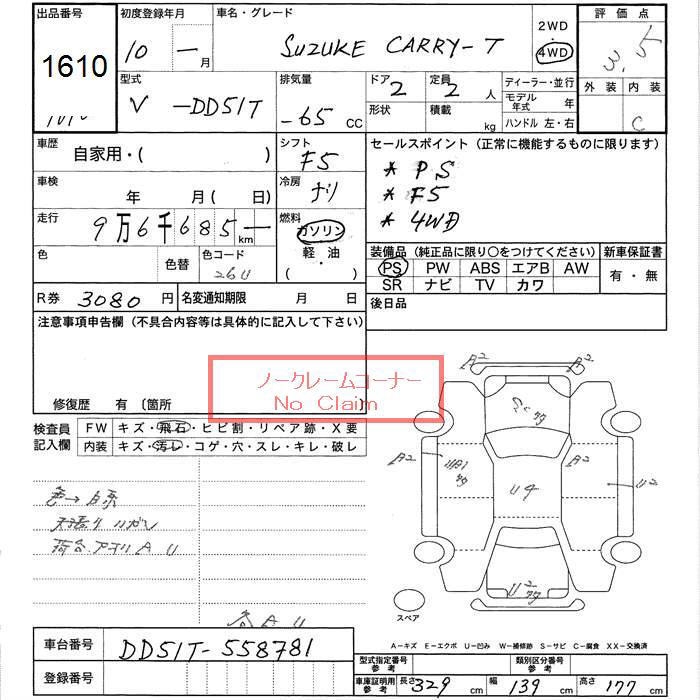 出品番号 初度登録年月 車名・グレード 2WD 評価点
1610 10 一月 SUZUKE CARRY-T ・ 4WD 3.5
型式 排気量 ドア 定員 ディーラー・並行 外装 内装
V -DD51T -65 CC 2 2人 モデル年式 年 C
形状 積載 kg ハンドル 左・右
車歴 自家用・( ) シフト F5 セールスポイント (正常に機能するものに限ります)
車検 年 月( 日) 冷房 ナシ * PS
* F5
* 4WD
走行 9万6千685 km 燃料 ガソリン
軽・油
( )
色 色替 色コード 26U
装備品 (純正品に限り〇をつけてください) 新車保証書
PS PW ABS エアB AW 有・無
SR ナビ TV カワ
R券 3080円 名変通知期限 月 日 後日品
注意事項申告欄 (不具合内容等は具体的に記入して下さい)
ノークレームコーナー
No Claim
修復歴 有 〔箇所 〕
検査員 FW キズ・飛石・ヒビ割・リペア跡・X要
記入欄 内装 キズ・汚レ・コゲ・穴・スレ・キレ・破レ
A2 A2
A2 A2 U2
U4
U2
スペア
A-キズ E-エクボ U-凹み W-補修跡 S-サビ C-腐食 XX-交換済
車台番号 DD51T-558781
登録番号
型式指定番号 参考 類別区分番号 参考
車庫証明用 参考 長さ 329 cm 幅 139 cm 高さ 177 cm